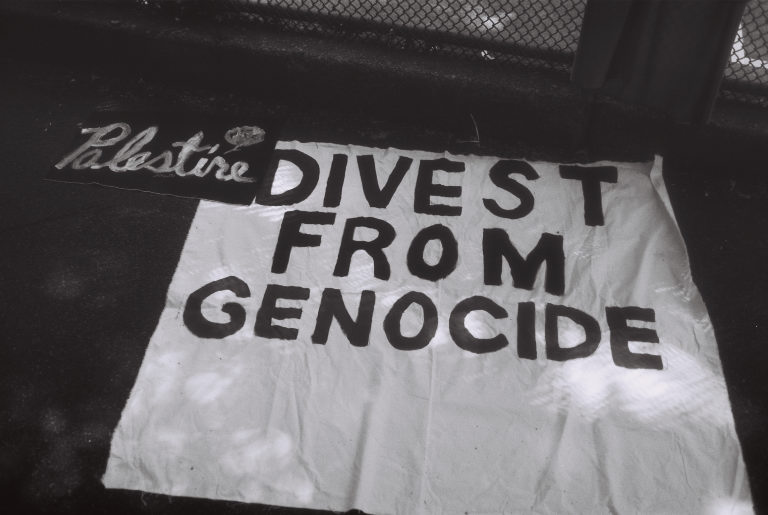 Palestine
DIVEST
FROM
GENOCIDE